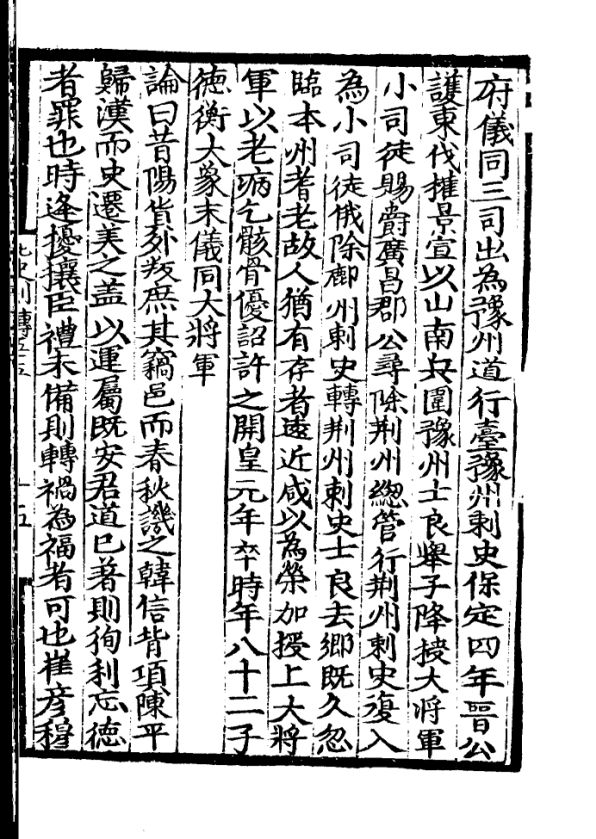 府儀同三司出為豫州道行臺豫州刺史保定四年晋公
護東伐權景宣以山南兵圍豫州士良舉子降授大將軍
小司徒賜爵廣昌郡公尋除荆州緫管行荆州刺史復入
為小司徒俄除鄜州刺史轉荆州刺史士良去鄉既久忽
臨本州耆老故人猶有存者遠近咸以為榮加授上大將
軍以老病乞骸骨優詔許之開皇元年卒時年八十二子
德衡大象末儀同大將軍
論曰昔陽貨外叛庶其竊邑而春秋譏之韓信背項陳平
歸漢而史遷美之盖以運屬既安君道已著則徇利忘德
者罪也時逢擾攘臣禮未備則轉禍為福者可也崔彦穆
北史列傳五十五
十五